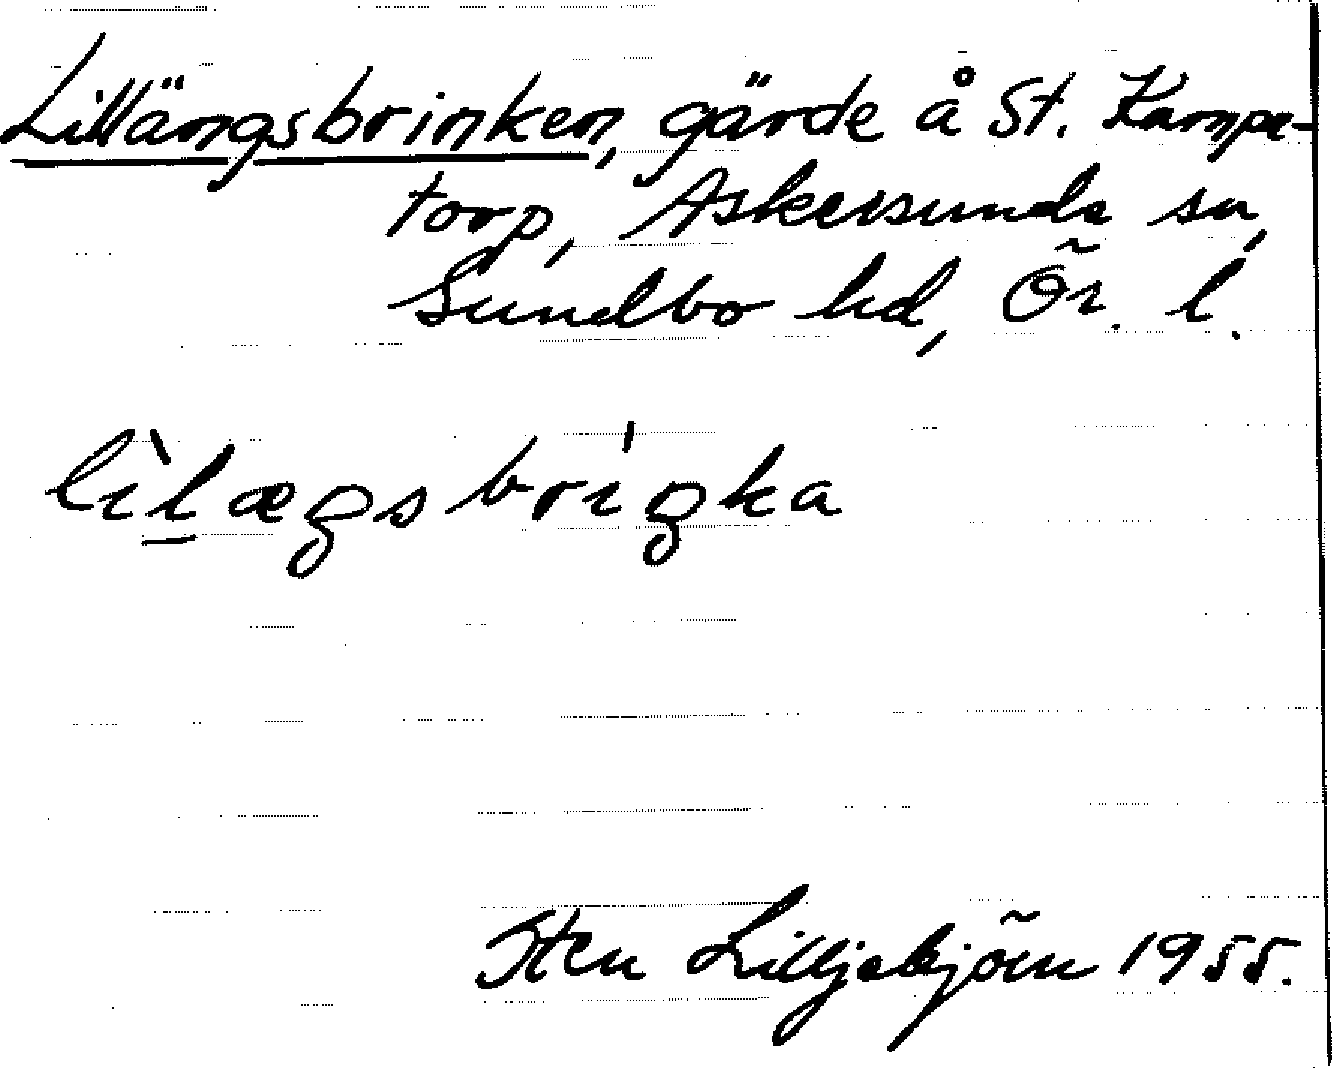 Lillängsbrinken, gärde å St. Kampe-
torp, Askersunds sn,
Sundbo hd, Ör. l.
lìlæŋsbrıŋka
Sten Lilljebjörn 1955.